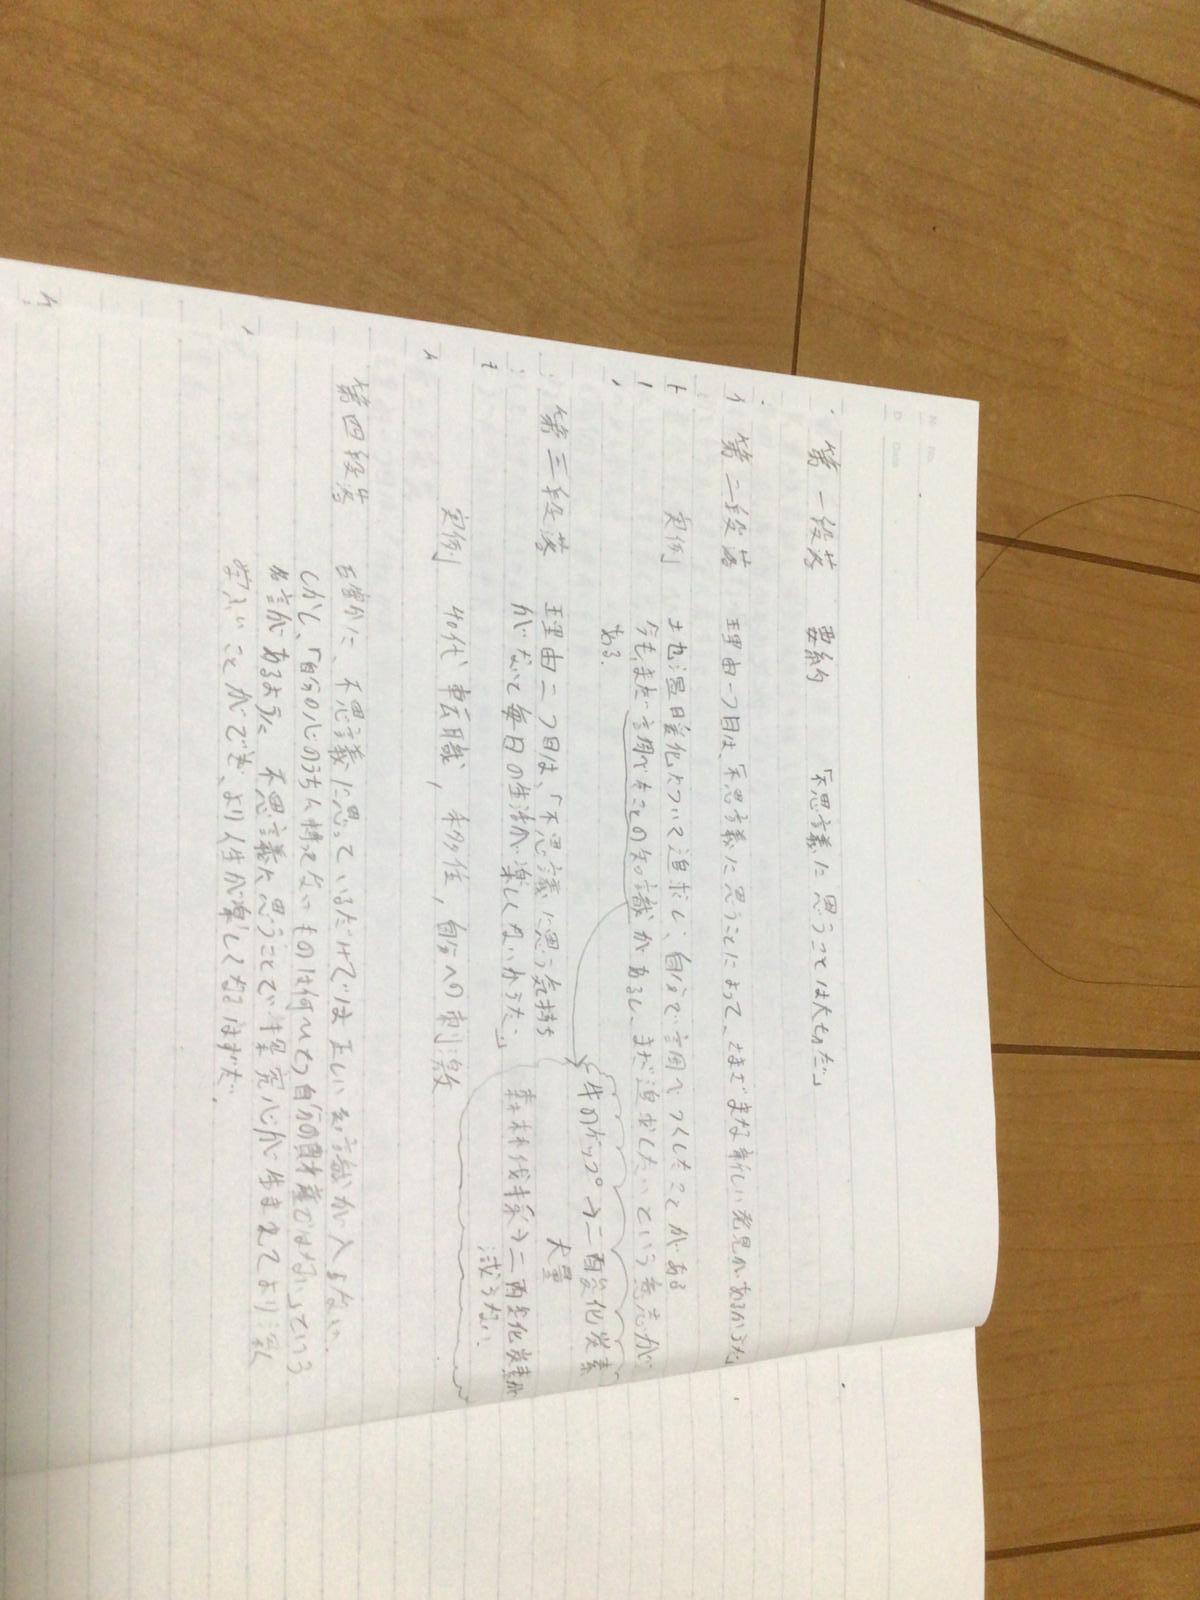 第一段落 要約 「不思議に思うことは大切だ」
第二段落 理由一つ目は、不思議に思うことによって、さまざまな新しい発見があるからだ
実例 土也温暖化について追求し、自分で調べつくしたことがある
今も、まだ調べたことの知識があるし、まだ追求したいという意志が
ある。
牛のゲップ→二酸炭化炭素
大量
第三段落 理由二つ目は、「不思議に思う気持ち
がなくて毎日の生活が楽しくないからだ」
森林伐採→二酸炭化炭素が
減らない
実例 40代 転職, 多忙, 自分への刺激
第四段落 確かに、不思議に思っているだけでは正しい知識が入らない
しかし、「自分の心のうちに持ってないものは何ひとつ自分の財産ではない」という
名言があるように 不思議に思うことで探究心が生まれてより深
いことができ、より人生が楽しくなるはずだ。